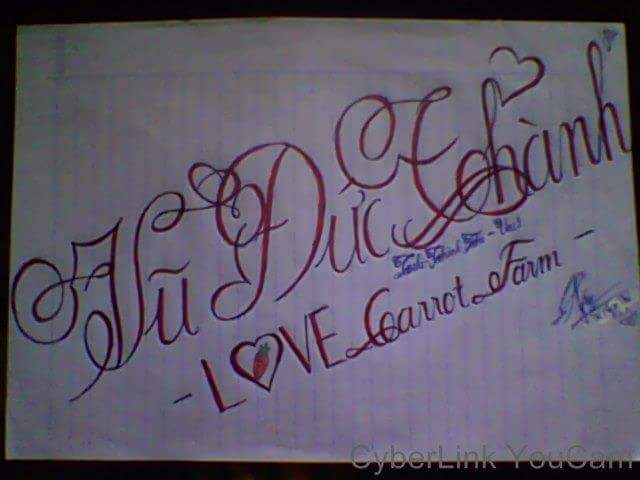 Vũ Đức Thành
- LOVE Carrot Farm -
CyberLink YouCam